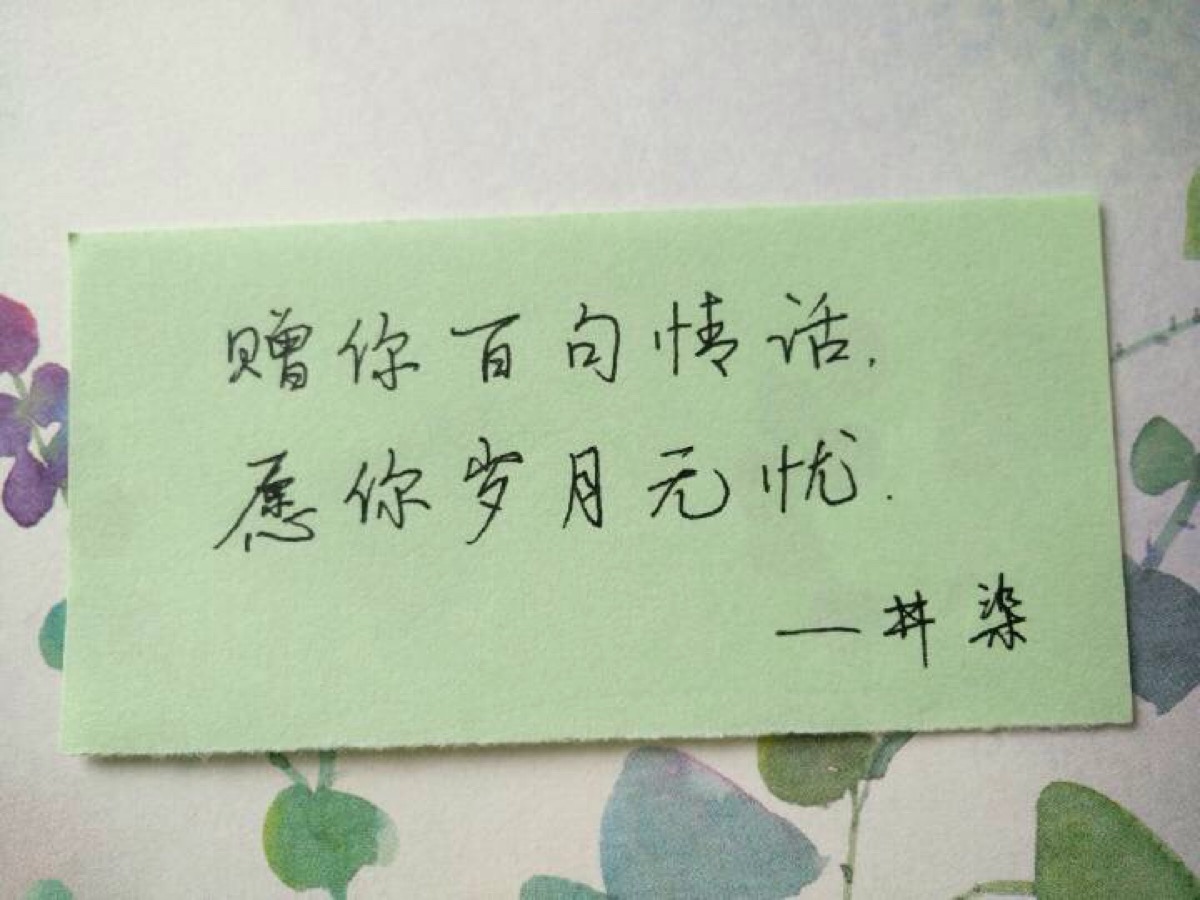 赠你百句情话.
愿你岁月无忧.
—井染